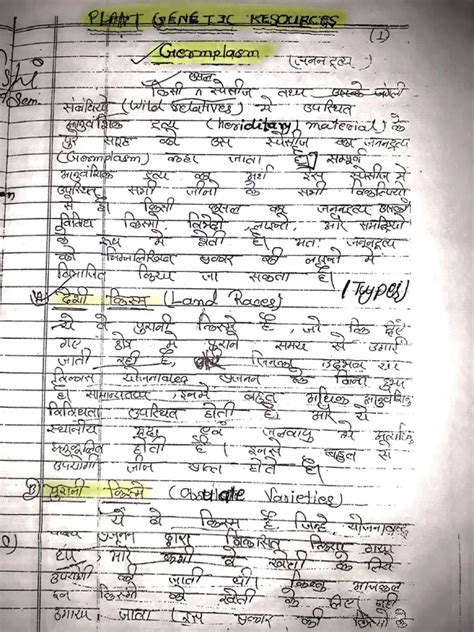 PLANT GENETIC RESOURCES
(1)
Germplasm (जनन द्रव्य)
फसल
किसी स्पेसीज तथा उसके जंगली
संबंधियों (Wild relatives) में उपस्थित
आनुवंशिक द्रव्य (heriditary material) के
पूरे संग्रह को उस स्पेसीज का जननद्रव्य
(Germplasm) कहा जाता है। सम्पूर्ण
आनुवंशिक द्रव्य का अर्थ है स्पेसीज में
उपस्थित सभी जीनों के सभी
से है। किसी फसल का जननद्रव्य उसकी
विविध किस्मों
के रूप में होती है। अतः जननद्रव्य
को निम्नलिखित प्रकार की
विभाजित किया जा सकता है। (Types)
A) देशी किस्में (Land Races)
ये वे पुरानी किस्में हैं, जो कि दिए
गए क्षेत्र में पुराने समय से उगाई
जाती रही हैं, जिनका उद्भव एवं
विकास योजनाबद्ध प्रजनन के बिना हुआ
है। सामान्यतया इनमें बहुत अधिक आनुवंशिक
विविधता उपस्थित होती है। और ये
स्थानीय मृदा एवं जलवायु में
अनुकूलित होती हैं। इनसे बहुत से
उपयोगी जीन प्राप्त होते हैं।
B) पुरानी किस्में (Obsulate Varieties)
ये वे किस्म हैं, जिन्हें योजनाबद्ध
प्रजनन द्वारा विकसित किया गया
था, और कभी वे खेती के लिये
उपयोग की जाती थी। किन्तु आजकल
इन किस्मों को खेती के लिए नहीं
उगाया जाता। इस प्रकार की किस्मों के